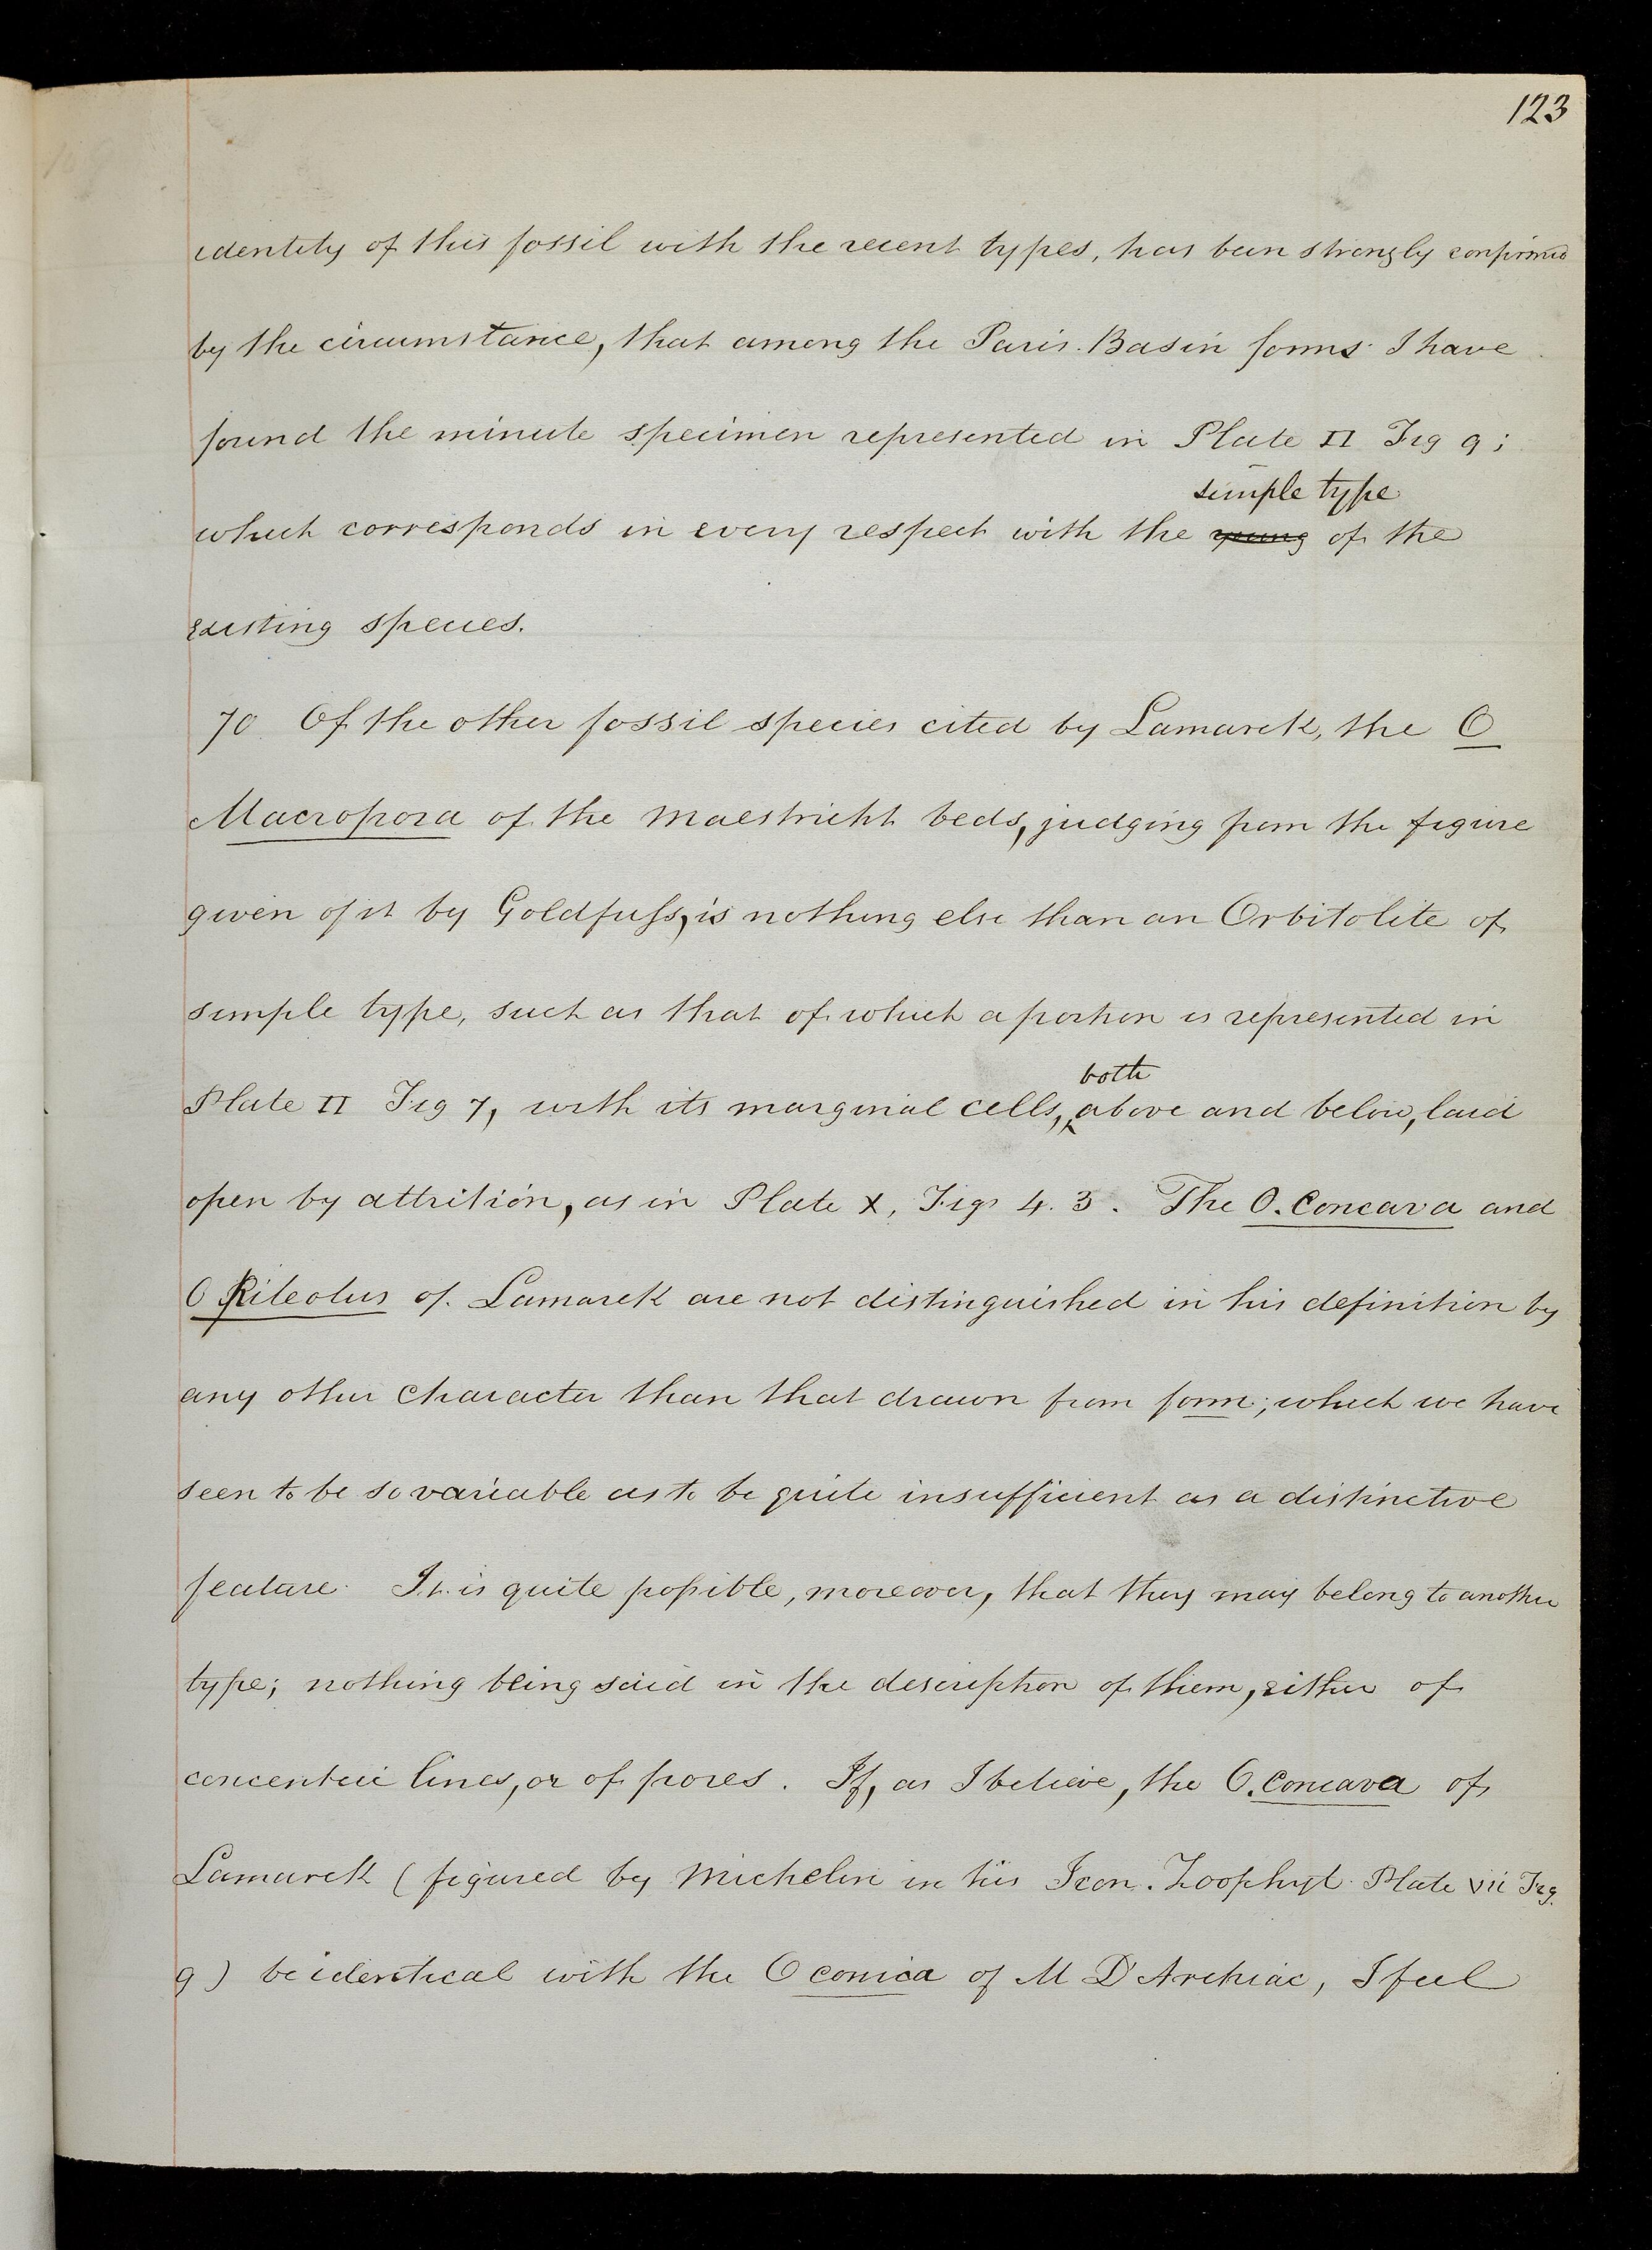 123
identity of this fossil with the recent types, has been strongly confirmed
by the circumstance, that among the Paris Basin forms I have
found the minute specimen represented in Plate II Fig 9;
simple type
which corresponds in every respect with the young of the
existing species.
70 Of the other fossil species cited by Lamarck, the O
Macropora of the Maestricht beds, judging from the figure
given of it by Goldfuſs, is nothing else than an Orbitolite of
simple type, such as that of which a portion is represented in
both
Plate II Fig 7, with its marginal cells, above and below, laid
open by attrition, as in Plate X, Figs 4. 3. The O. Concava and
O Pileolus of Lamarck are not distinguished in his definition by
any other character than that drawn from form; which we have
seen to be so variable as to be quite insufficient as a distinctive
feature. It is quite poſsible, moreover, that they may belong to another
type; nothing being said in the description of them, either of
concentric lines, or of pores. If, as I believe, the O. Concava of
Lamarck (figured by Michelin in his Icon. Zoophyt. Plate vii Fig.
9) be identical with the O conica of M D'Archiac, I feel